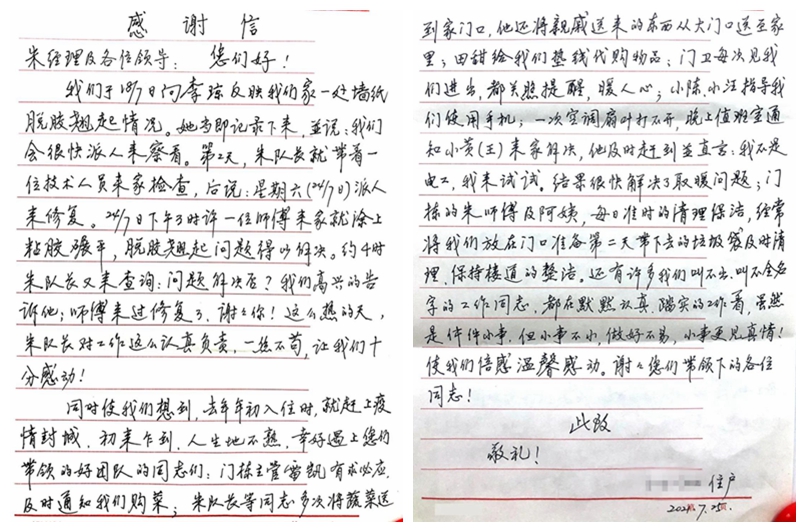 感谢信
朱经理及各位领导： 您们好！
我们于18/7日向李琼反映我们家一处墙纸
脱胶翘起情况。她当即记录下来，并说：我们
会很快派人来察看。第二天，朱队长就带着一
位技术人员来家检查，后说：星期六(24/7日)派人
来修复。24/7日下午3时许一位师傅来家就涂上
粘胶碾平，脱胶翘起问题得以解决。约4时
朱队长又来查询：问题解决否？我们高兴的告
诉他：师傅来过修复了，谢谢你！这么热的天，
朱队长对工作这么认真负责，一丝不苟，让我们十
分感动！
同时使我们想到，去年年初入住时，就赶上疫
情封城，初来乍到，人生地不熟，幸好遇上您们
带领的好团队的同志们：门栋主管雷凯有求必应，
及时通知我们购菜；朱队长等同志多次将蔬菜送
到家门口，他还将亲戚送来的东西从大门口送至家
里；田甜给我们热线代购物品；门卫每次见我
们进出，都关照提醒，暖人心；小陈、小汪指导我
们使用手机；一次空调扇叶打不开，晚上值班室通
知小黄(王)来家解决，他及时赶到并直言：我不是
电工，我来试试。结果很快解决了取暖问题；门
栋的朱师傅及阿姨，每日准时的清理保洁，经常
将我们放在门口准备第二天带下去的垃圾袋及时清
理，保持楼道的整洁。还有许多我们叫不出、叫不全名
字的工作同志，都在默默认真、踏实的工作着，虽然
是件件小事，但小事不小，做好不易，小事更见真情！
使我们倍感温馨感动。谢谢您们带领下的各位
同志！
此致
敬礼！
住户
2021.7.25